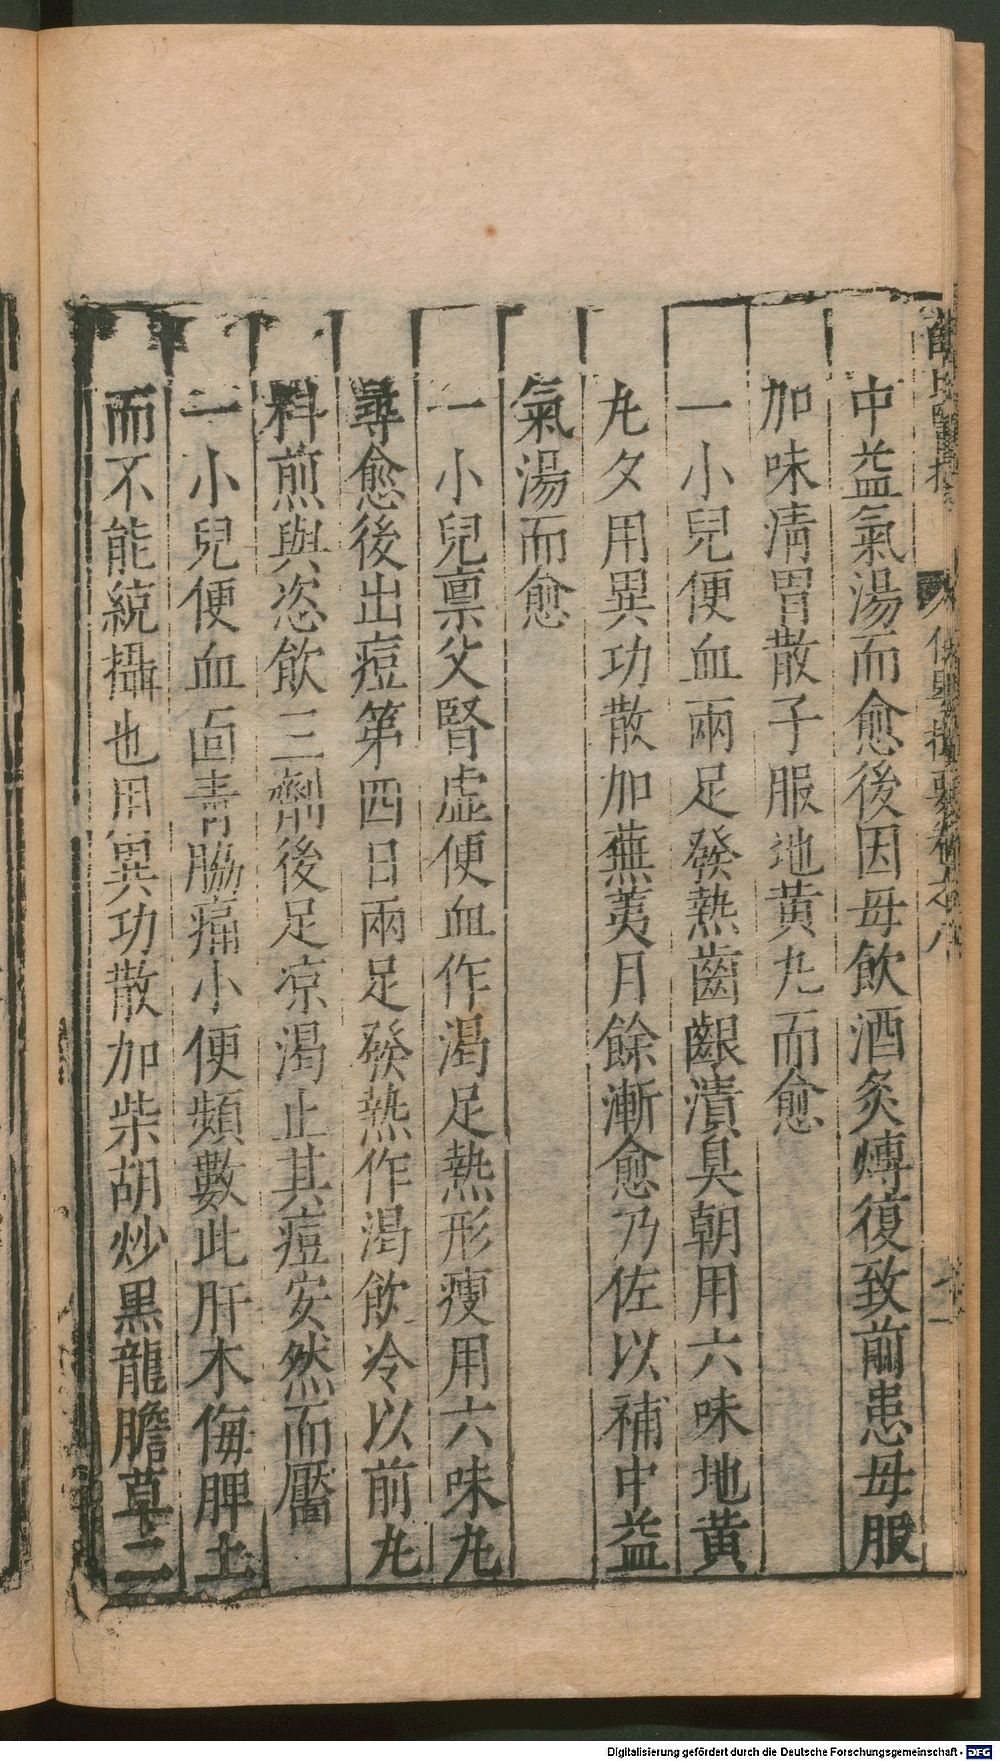 中益氣湯而愈後因毋飲酒炙煿復致前患毋服
加味清胃散子服地黄九而愈
一小兒便血兩足發熱齒齦潰臭朝用六味地黄
九夕用異功散加蕪荑月餘漸愈乃佐以補中益
氣湯而愈
一小兒禀父腎虛便血作渴足熱形瘦用六味九
尋愈後出痘第四日兩足發熱作渴飲冷以前九
料煎與恣飲三劑後足凉渴止其痘安然而靨
一小兒便血面青脇痛小便頻數此肝木侮脾土
而不能統攝也用異功散加柴胡炒黑龍膽草二
Digitalisierung gefördert durch die Deutsche Forschungsgemeinschaft - DFG